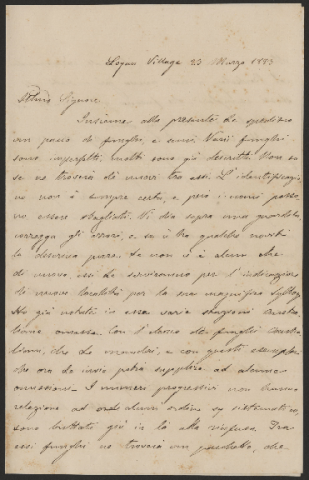 Logan Village 23 Marzo 1893
Signore
Insieme alla presente Le spedisco
un pacco di funghi, e sono Varii funghi
sono imperfetti, molti sono già descritti. Non so
se ne troverà di nuovi tra essi. L'identificazio
ne non è sempre certa, e però i nomi posso
no essere sbagliati. Vi dia sopra una guardata,
corregga gli errori, e se v'ha qualche novità
la descriva pure. Se non v'è alcun che
di nuovo, essi Le serviranno per l'indicazione
di nuove località per la sua magnifica Sylloge
Ho già notato in essa varie stazioni
omesse. Con l'elenco dei funghi
che Le manderò, e con questi esemplari
che ora Le invio potrà supplire ad alcune
ommissioni. I numeri progressivi non hanno
relazione ad alcun ordine sistematico,
sono buttati giù in là alla rinfusa. Fra
essi funghi ne troverà un pacchetto, che